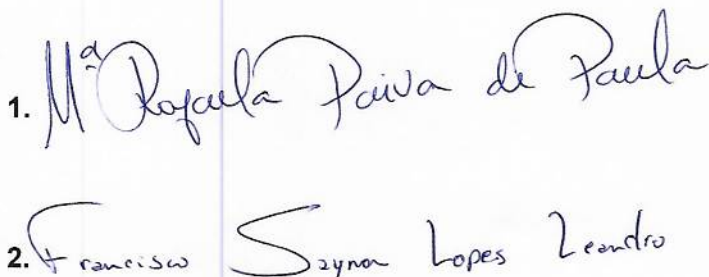 1. Mª Rafaela Paiva de Paula
2. Francisco Saynon Lopes Leandro